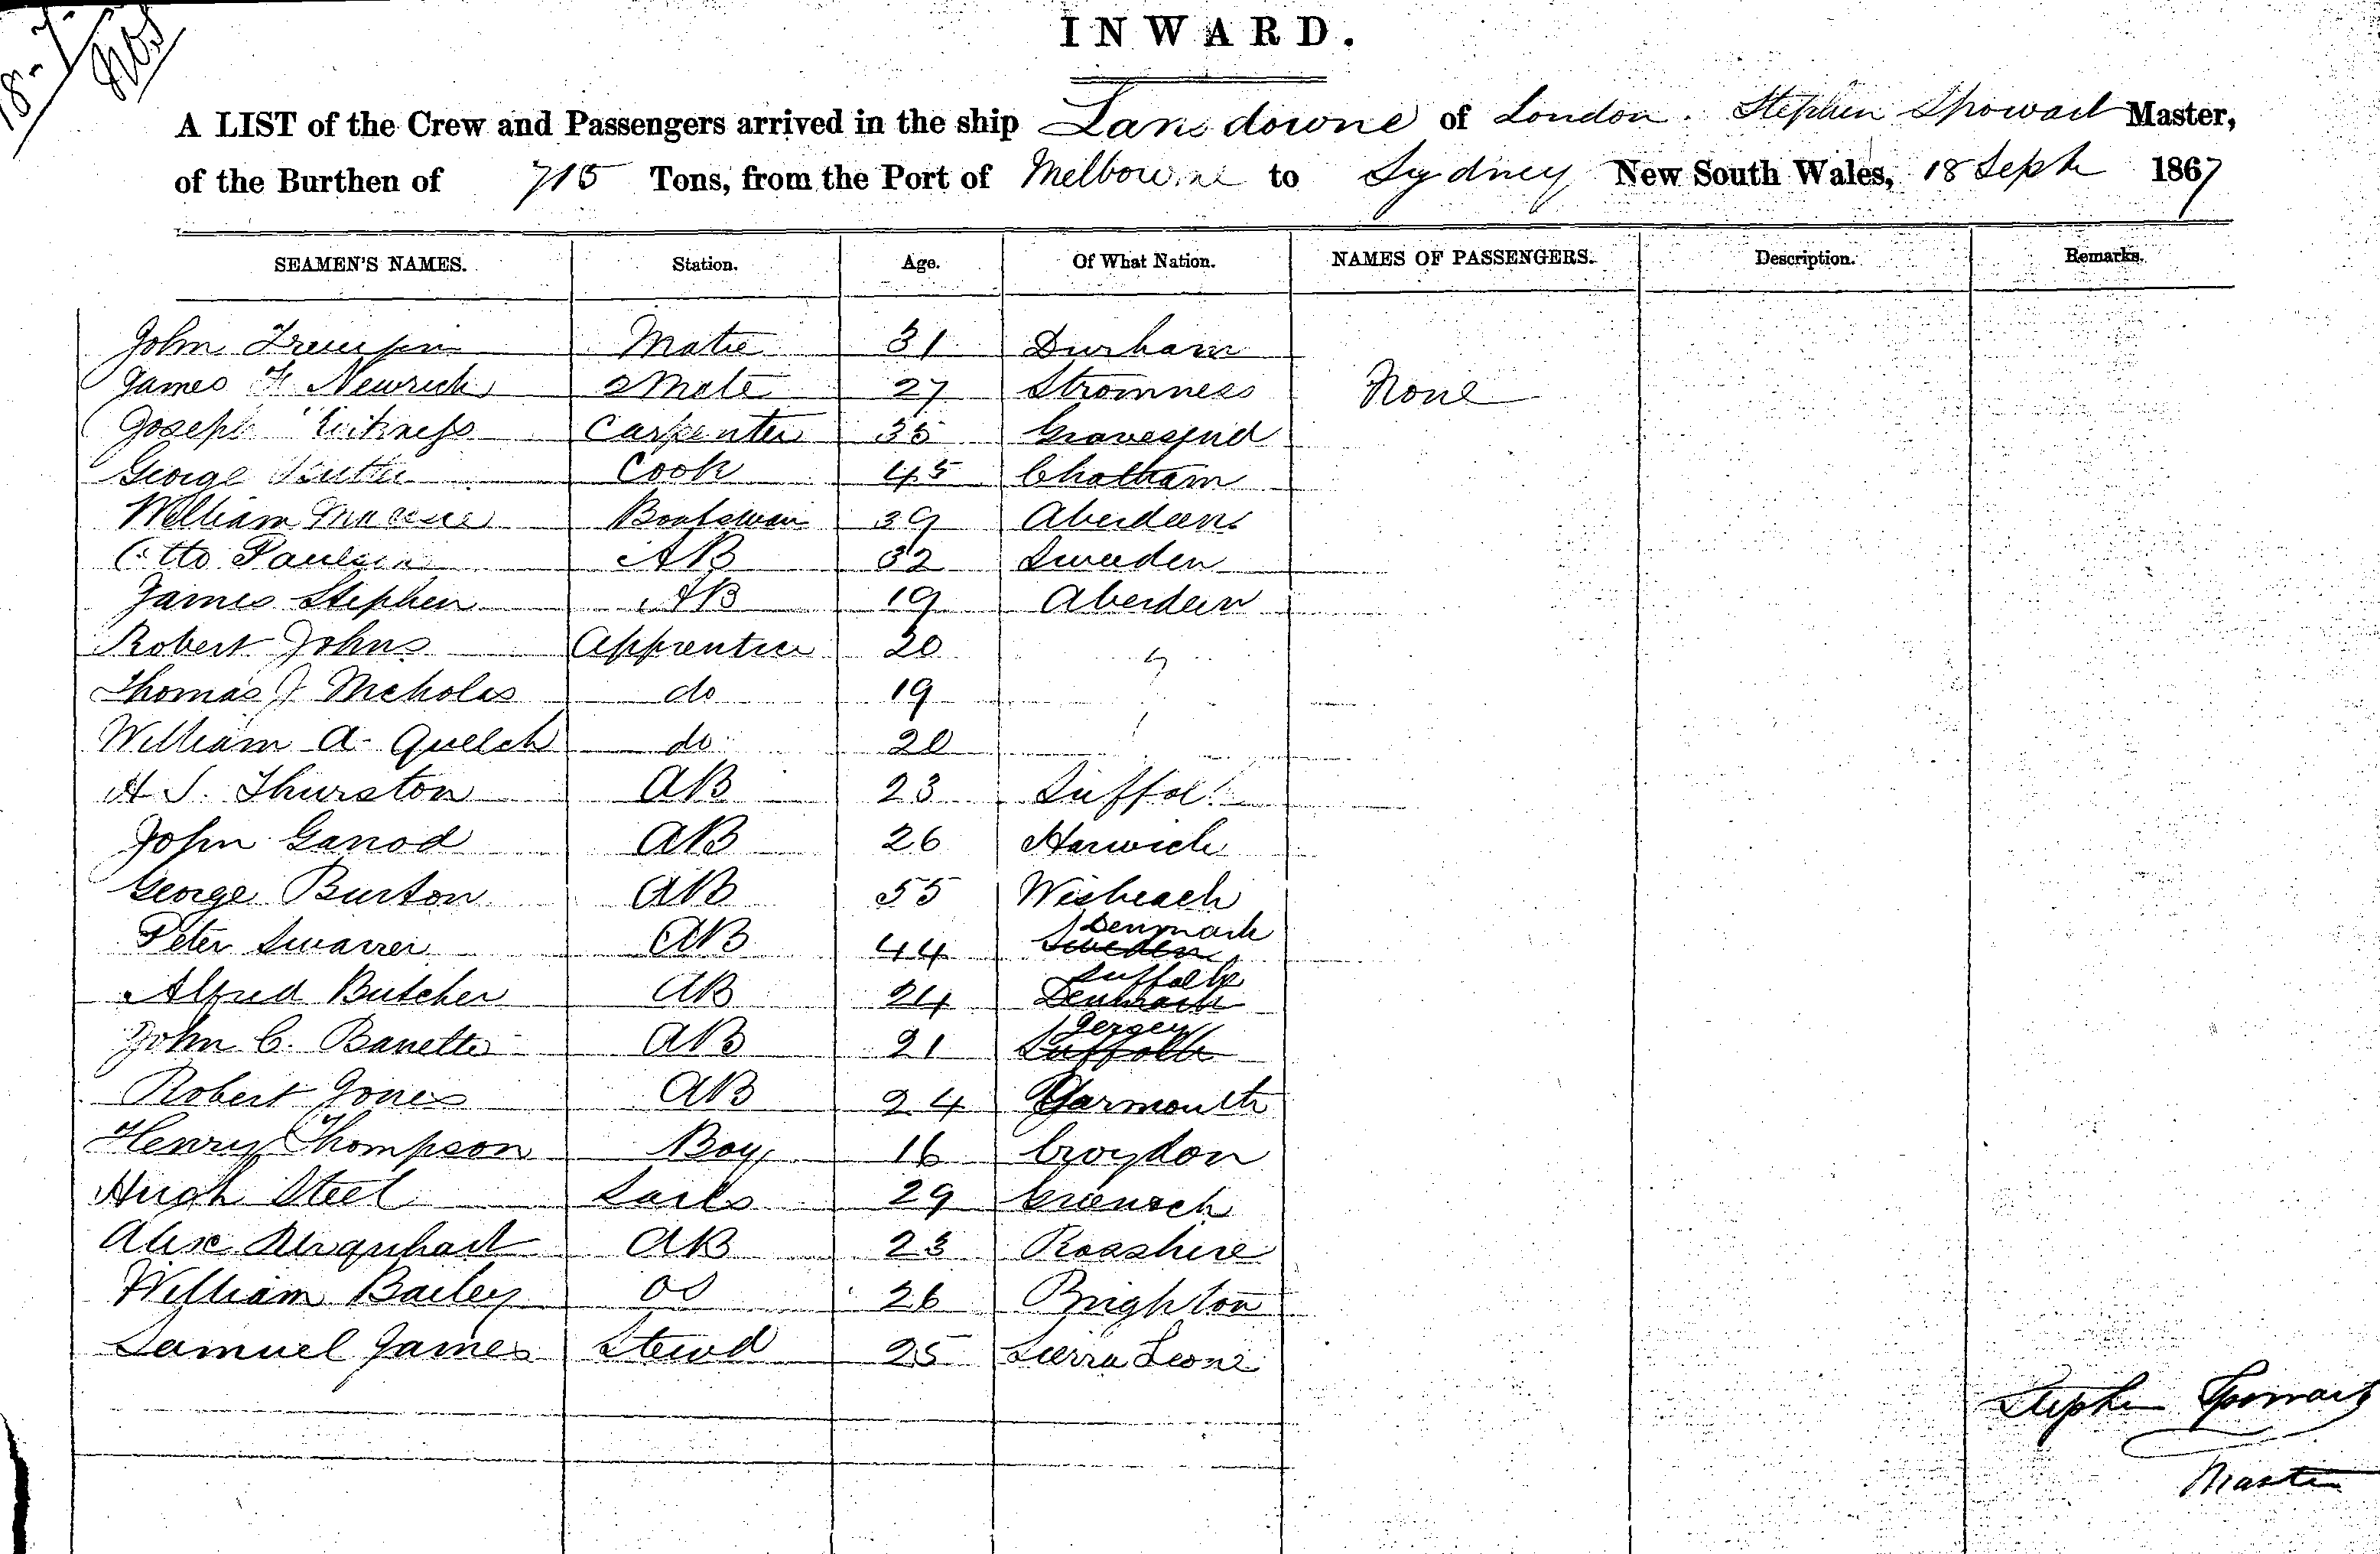 INWARD.
A LIST of the Crew and Passengers arrived in the ship Lansdowne of London. Stephen Spowart Master,
of the Burthen of 715 Tons, from the Port of Melbourne to Sydney New South Wales, 18 Sept 1867
SEAMEN'S NAMES. Station. Age. Of What Nation. NAMES OF PASSENGERS. Description. Remarks.
John Mate 31 Durham
James Newrick 2 Mate 27 Stromness None
Joseph Carpenter 35 Gravesend
George Cook 45 Chatham
William Boatswain 39 Aberdeen
Otto Paulsen AB 32 Sweden
James Stephen AB 19 Aberdeen
Robert Johns Apprentice 20
Thomas J Nicholas do 19
William A. Quelch do 20
H S. Thurston AB 23 Suffolk
John Garrod AB 26 Harwich
George Burton AB 55 Wisbeach
Peter Swarrer AB 44 Denmark
Sweden
Alfred Butcher AB 24 Suffolk
Denmark
John C. Barrette AB 21 Jersey
Suffolk
Robert Jones AB 24 Yarmouth
Henry Thompson Boy 16 Croydon
Hugh Steel Sails 29 Greenock
Alex Urquhart AB 23 Rosshire
William Bailey OS 26 Brighton
Samuel James Stewd 25 Sierra Leone
Stephen Spowart
Master